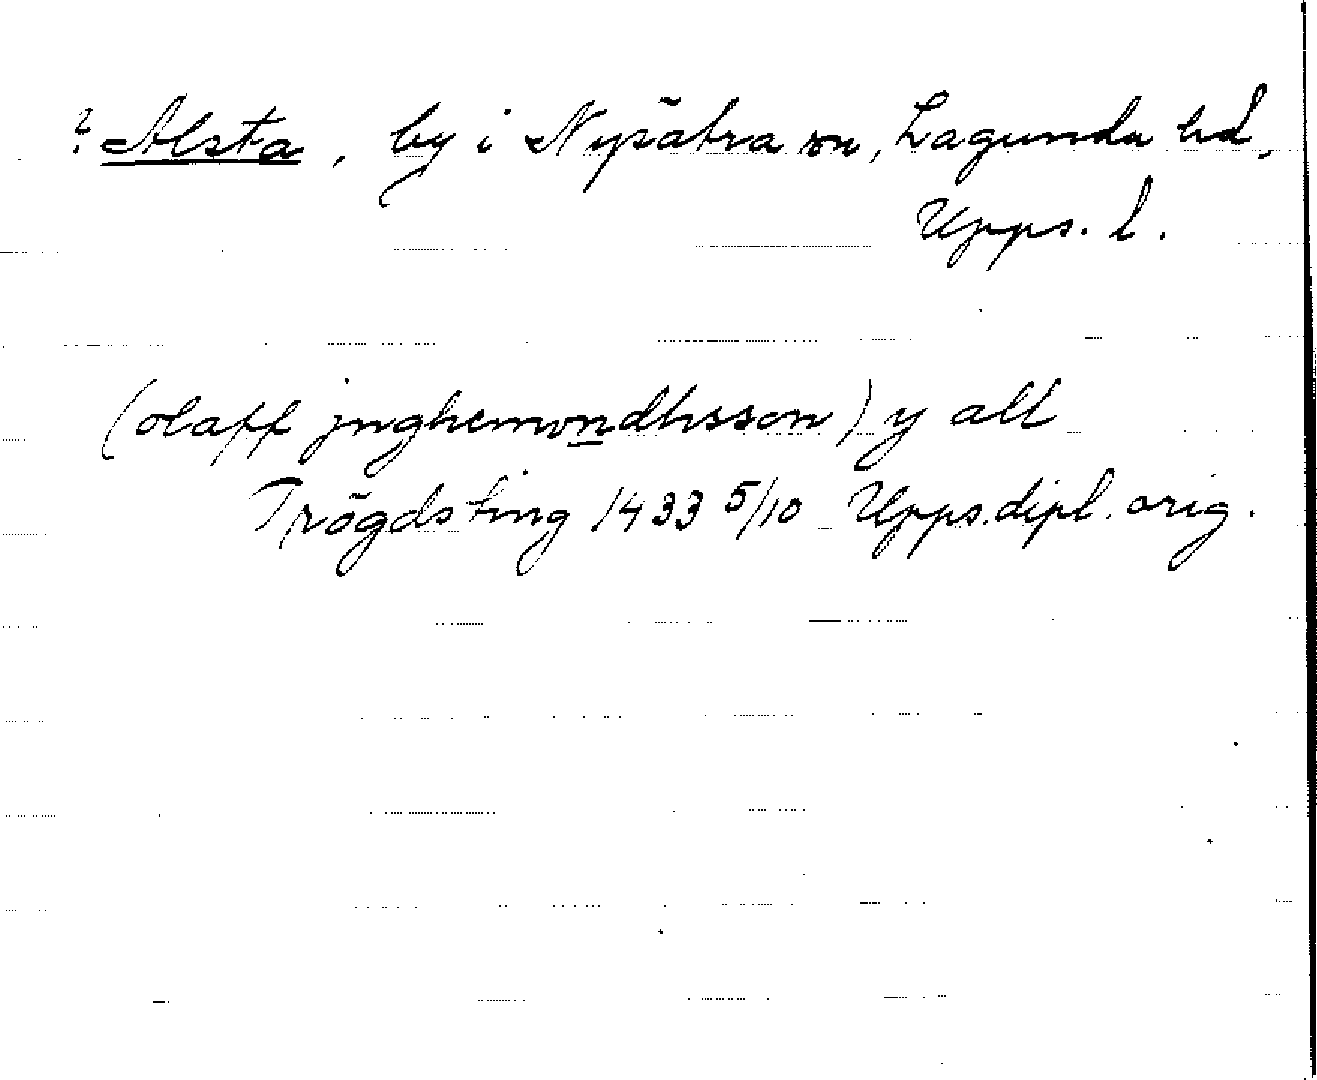 ? Alsta, by i Nysätra sn, Lagunda hd,
Upps. l.
(olaff jnghemondhsson) y all
Trögdsting 1433 5/10 Upps.dipl. orig.